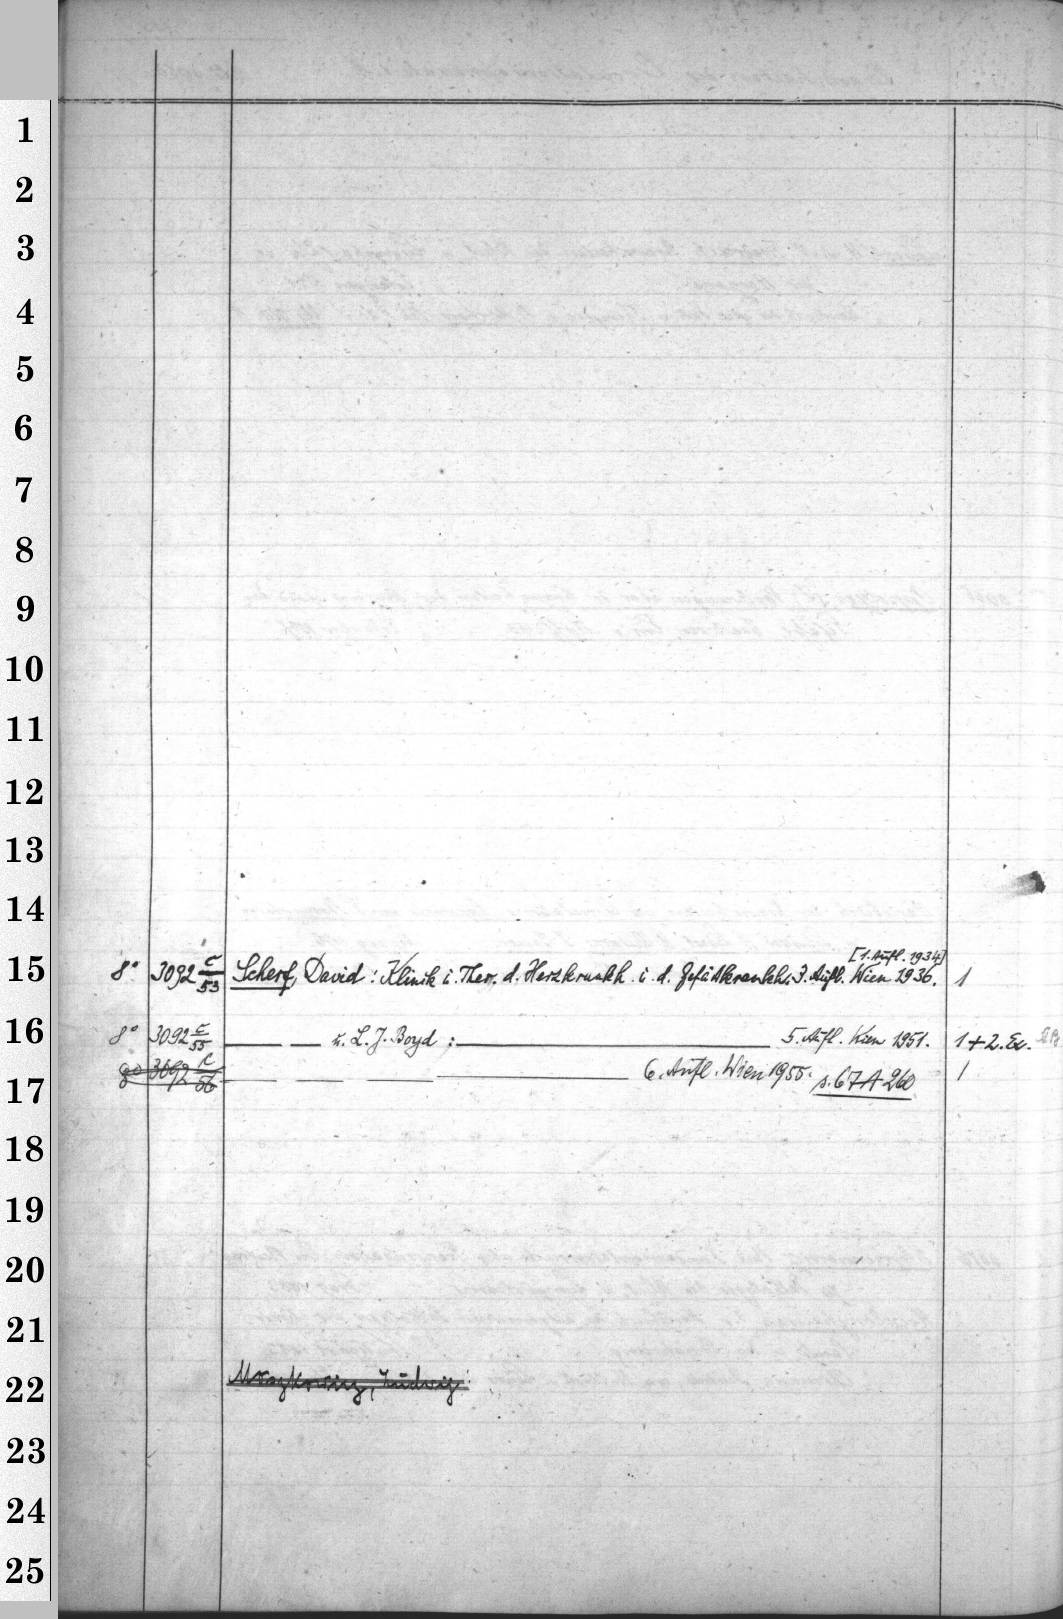 1
2
3
4
5
6
7
8
9
10
11
12
13
14
[1. Aufl. 1934]
15 8° 3092 c/53 Scherf, David: Klinik u. Ther. d. Herzkrankh. u. d. Gefäßkrankh. 3. Aufl. Wien 1936. 1
16 8° 3092 c/55 — — u. L. J. Boyd: — 5. Aufl. Wien 1951. 1 + 2. Ex.
17 8° 3092 c/56 — — — — 6. Aufl. Wien 1955. s. 67 A 260 1
18
19
20
21
22 Ludwig
23
24
25